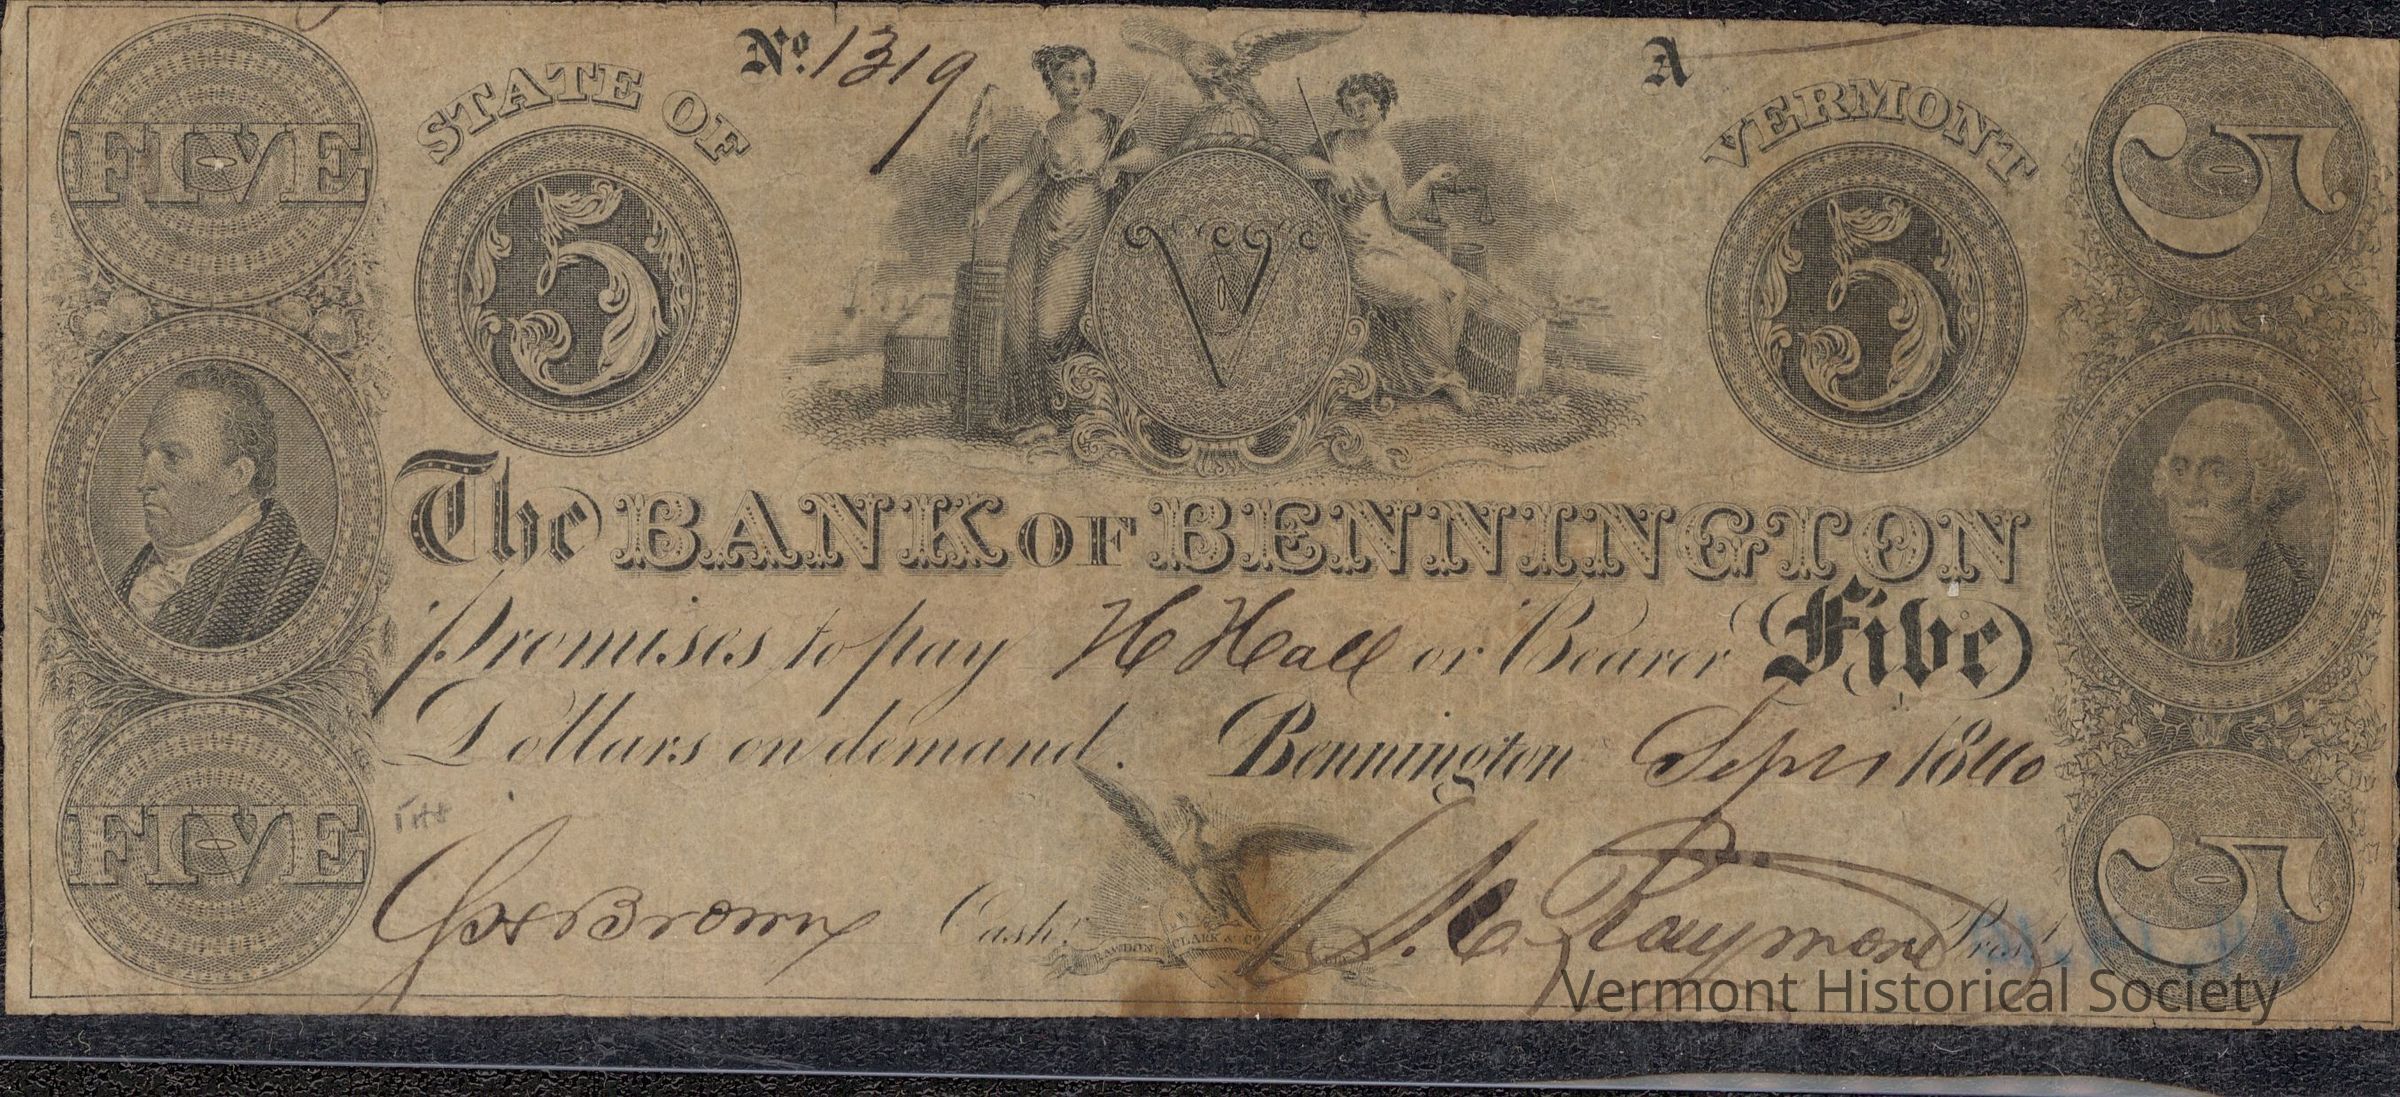 No. 1319
A
STATE OF
VERMONT
FIVE
5
V
5
5
The BANK OF BENNINGTON
Promises to pay H Hall or Bearer Five
Dollars on demand. Bennington Sept 1 1840
FIVE
5
Brown Cash.
RAWDON CLARK & CO.
Raymond Prest
Vermont Historical Society